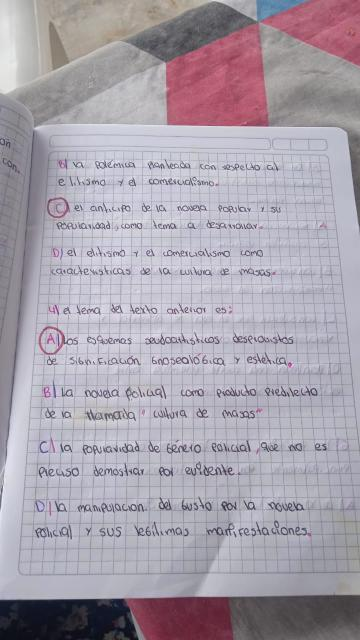 on
con.
B) la polémica planteada con respecto al
elitismo y el comercialismo.
C) el anticipo de la novela popular y su
popularidad, como tema a desarrollar.
D) el elitismo y el comercialismo como
características de la cultura de masas.
4) el tema del texto anterior es:
A) los esquemas seudoartisticos desprovistos
de significación gnoseológica y estetica.
B) la novela policial como producto predilecto
de la llamada "cultura de masas"
C) la popularidad de género policial, que no es
preciso demostrar por evidente.
D) la manipulacion del gusto por la novela
policial y sus legitimas manifestaciones.